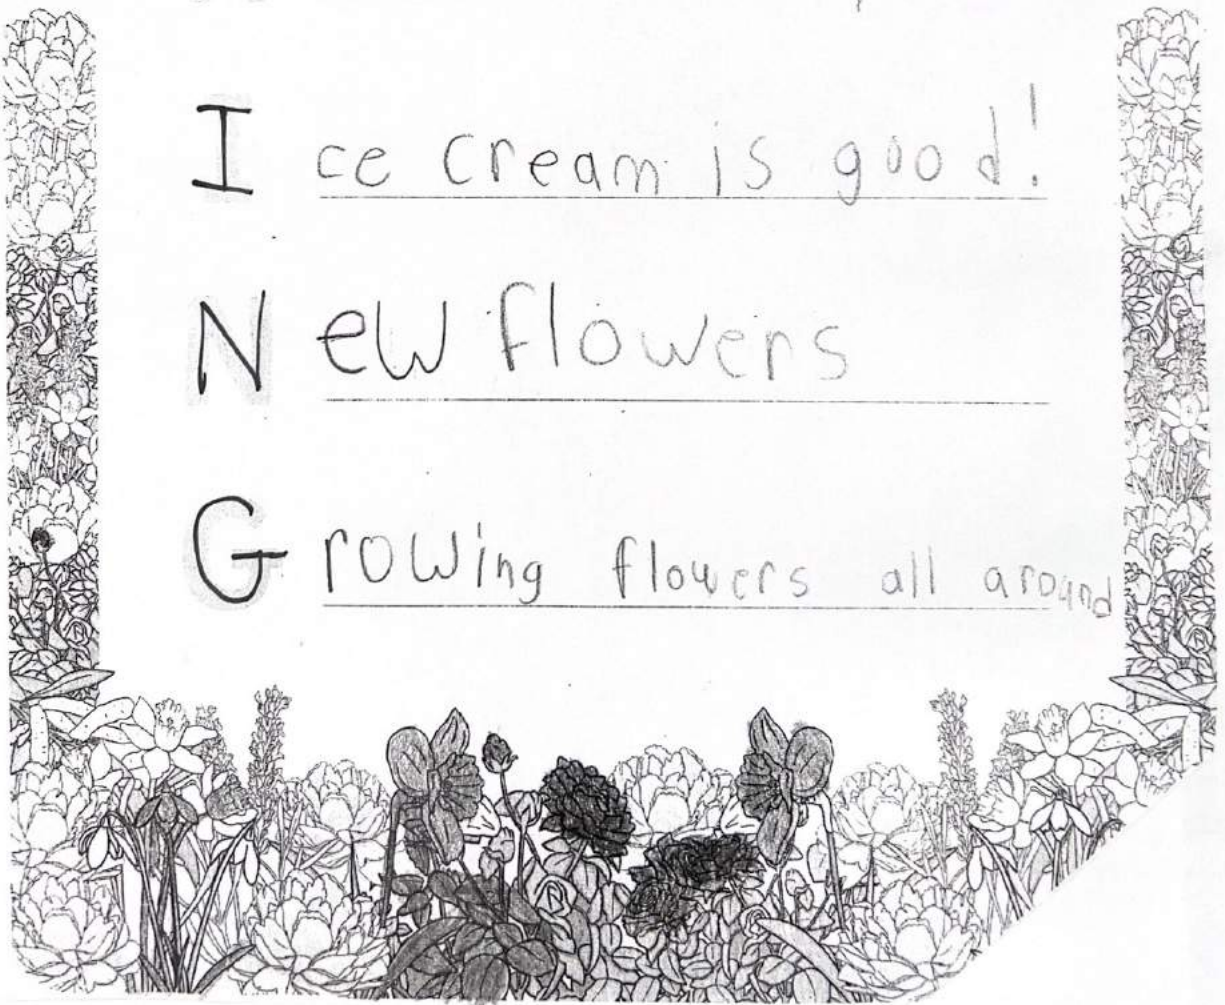 Ice cream is good!
New flowers
Growing flowers all around